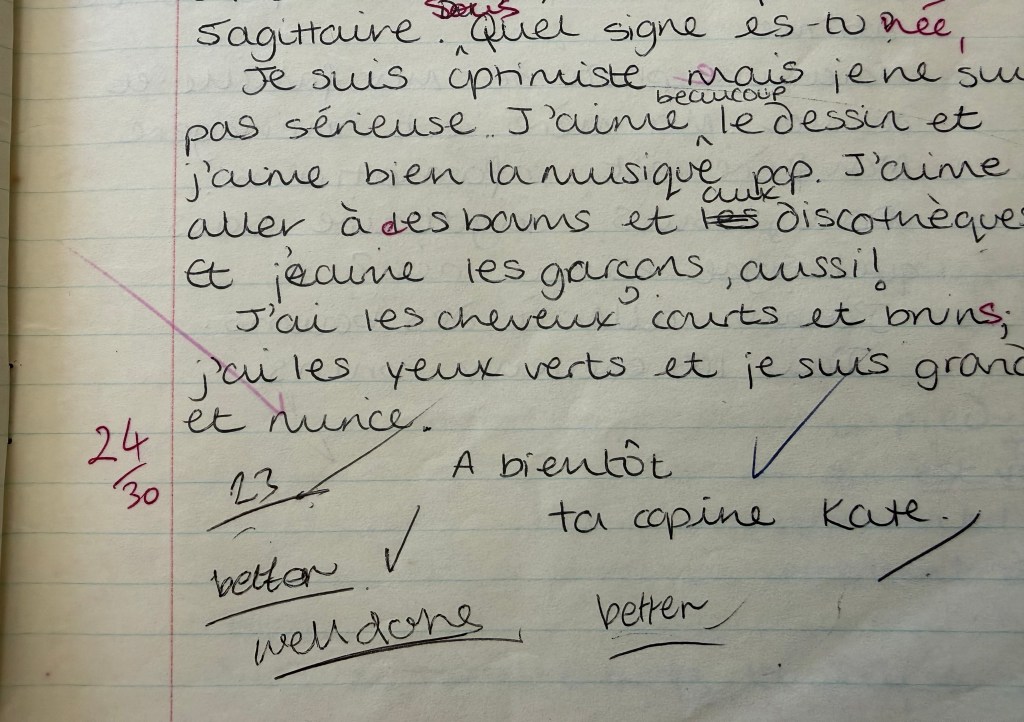 Sous
Sagittaire. Quel signe es-tu née,
Je suis optimiste mais je ne sui
beaucoup
pas sérieuse. J'aime le dessin et
j'aime bien la musique pop. J'aime
aux
aller à des boums et les discothèques
et j'aime les garçons, aussi!
J'ai les cheveux courts et bruns;
j'ai les yeux verts et je suis grand
et mince.
24/30
23
A bientôt
ta copine Kate.
better
well done
better